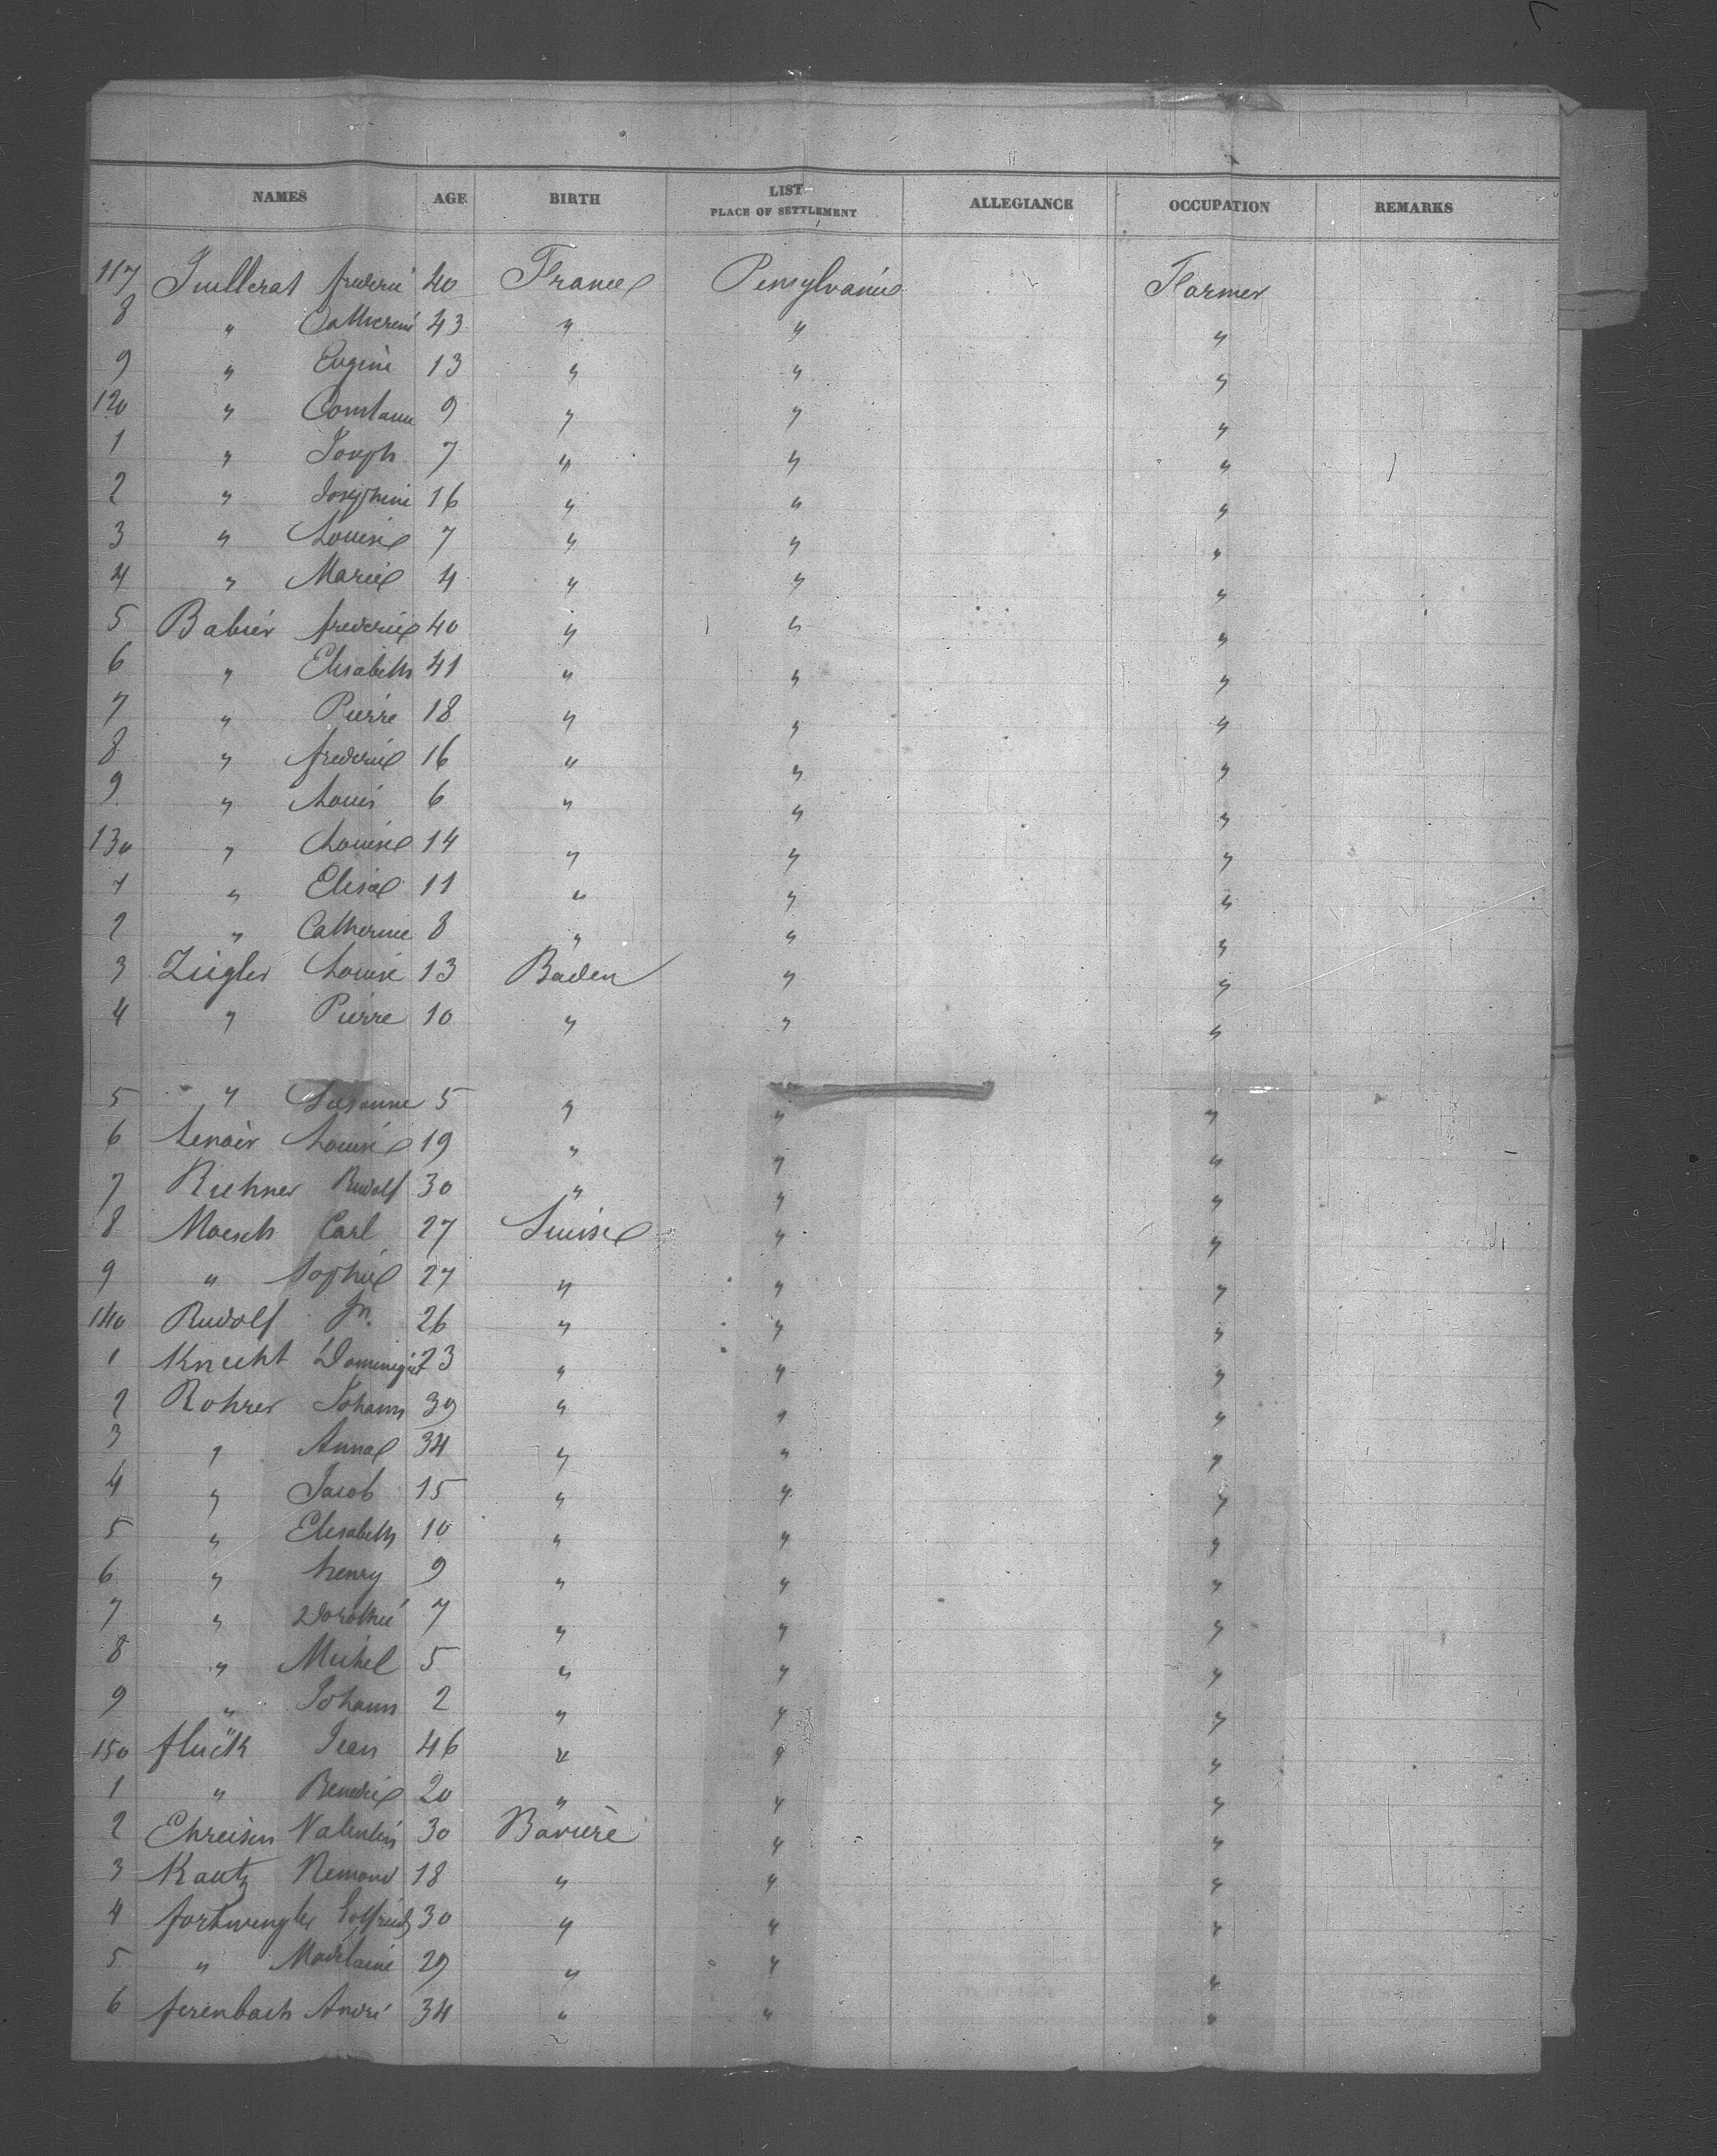 NAMES AGE BIRTH LIST PLACE OF SETTLEMENT ALLEGIANCE OCCUPATION REMARKS
117 Juillerat frederic 40 France Pensylvanie Farmer
8 " Catherine 43 " " "
9 " Eugene 13 " " "
120 " Constance 9 " " "
1 " Joseph 7 " " "
2 " Josephine 16 " " "
3 " Louise 7 " " "
4 " Marie 4 " " "
5 Babier frederic 40 " " "
6 " Elisabeth 41 " " "
7 " Pierre 18 " " "
8 " frederic 16 " " "
9 " Louis 6 " " "
130 " Louise 14 " " "
1 " Elise 11 " " "
2 " Catherine 8 " " "
3 Ziegler Louise 13 Baden " "
4 " Pierre 10 " " "
5 " Susanne 5 " " "
6 Lenoir Louise 19 " " "
7 Riehner Rudolf 30 " " "
8 Moesch Carl 27 Suisse " "
9 " Sophie 27 " " "
140 Rudolf Jn. 26 " " "
1 Knecht Dominique 23 " " "
2 Rohrer Johann 39 " " "
3 " Anna 34 " " "
4 " Jacob 15 " " "
5 " Elisabeth 10 " " "
6 " henry 9 " " "
7 " Dorothée 7 " " "
8 " Michel 5 " " "
9 " Johann 2 " " "
150 flück Jean 46 " " "
1 " 20 " " "
2 Ehreisen Valentin 30 Baviere " "
3 Kautz 18 " " "
4 Gotfried 30 " " "
5 " Madelaine 29 " " "
6 ferenbach André 34 " " "